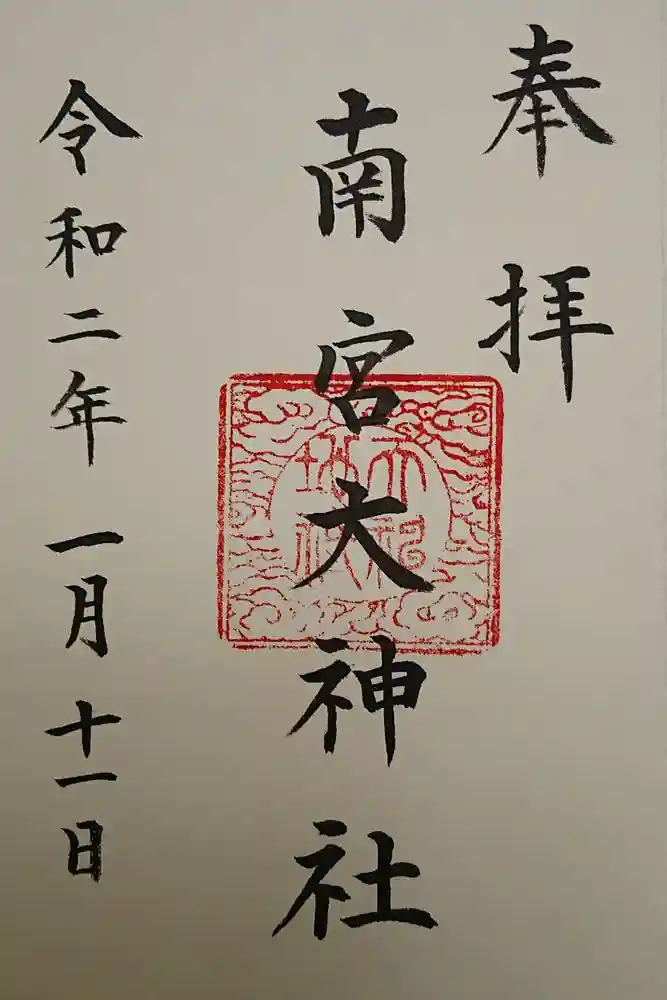 奉拝
南宮大神社
令和二年一月十一日